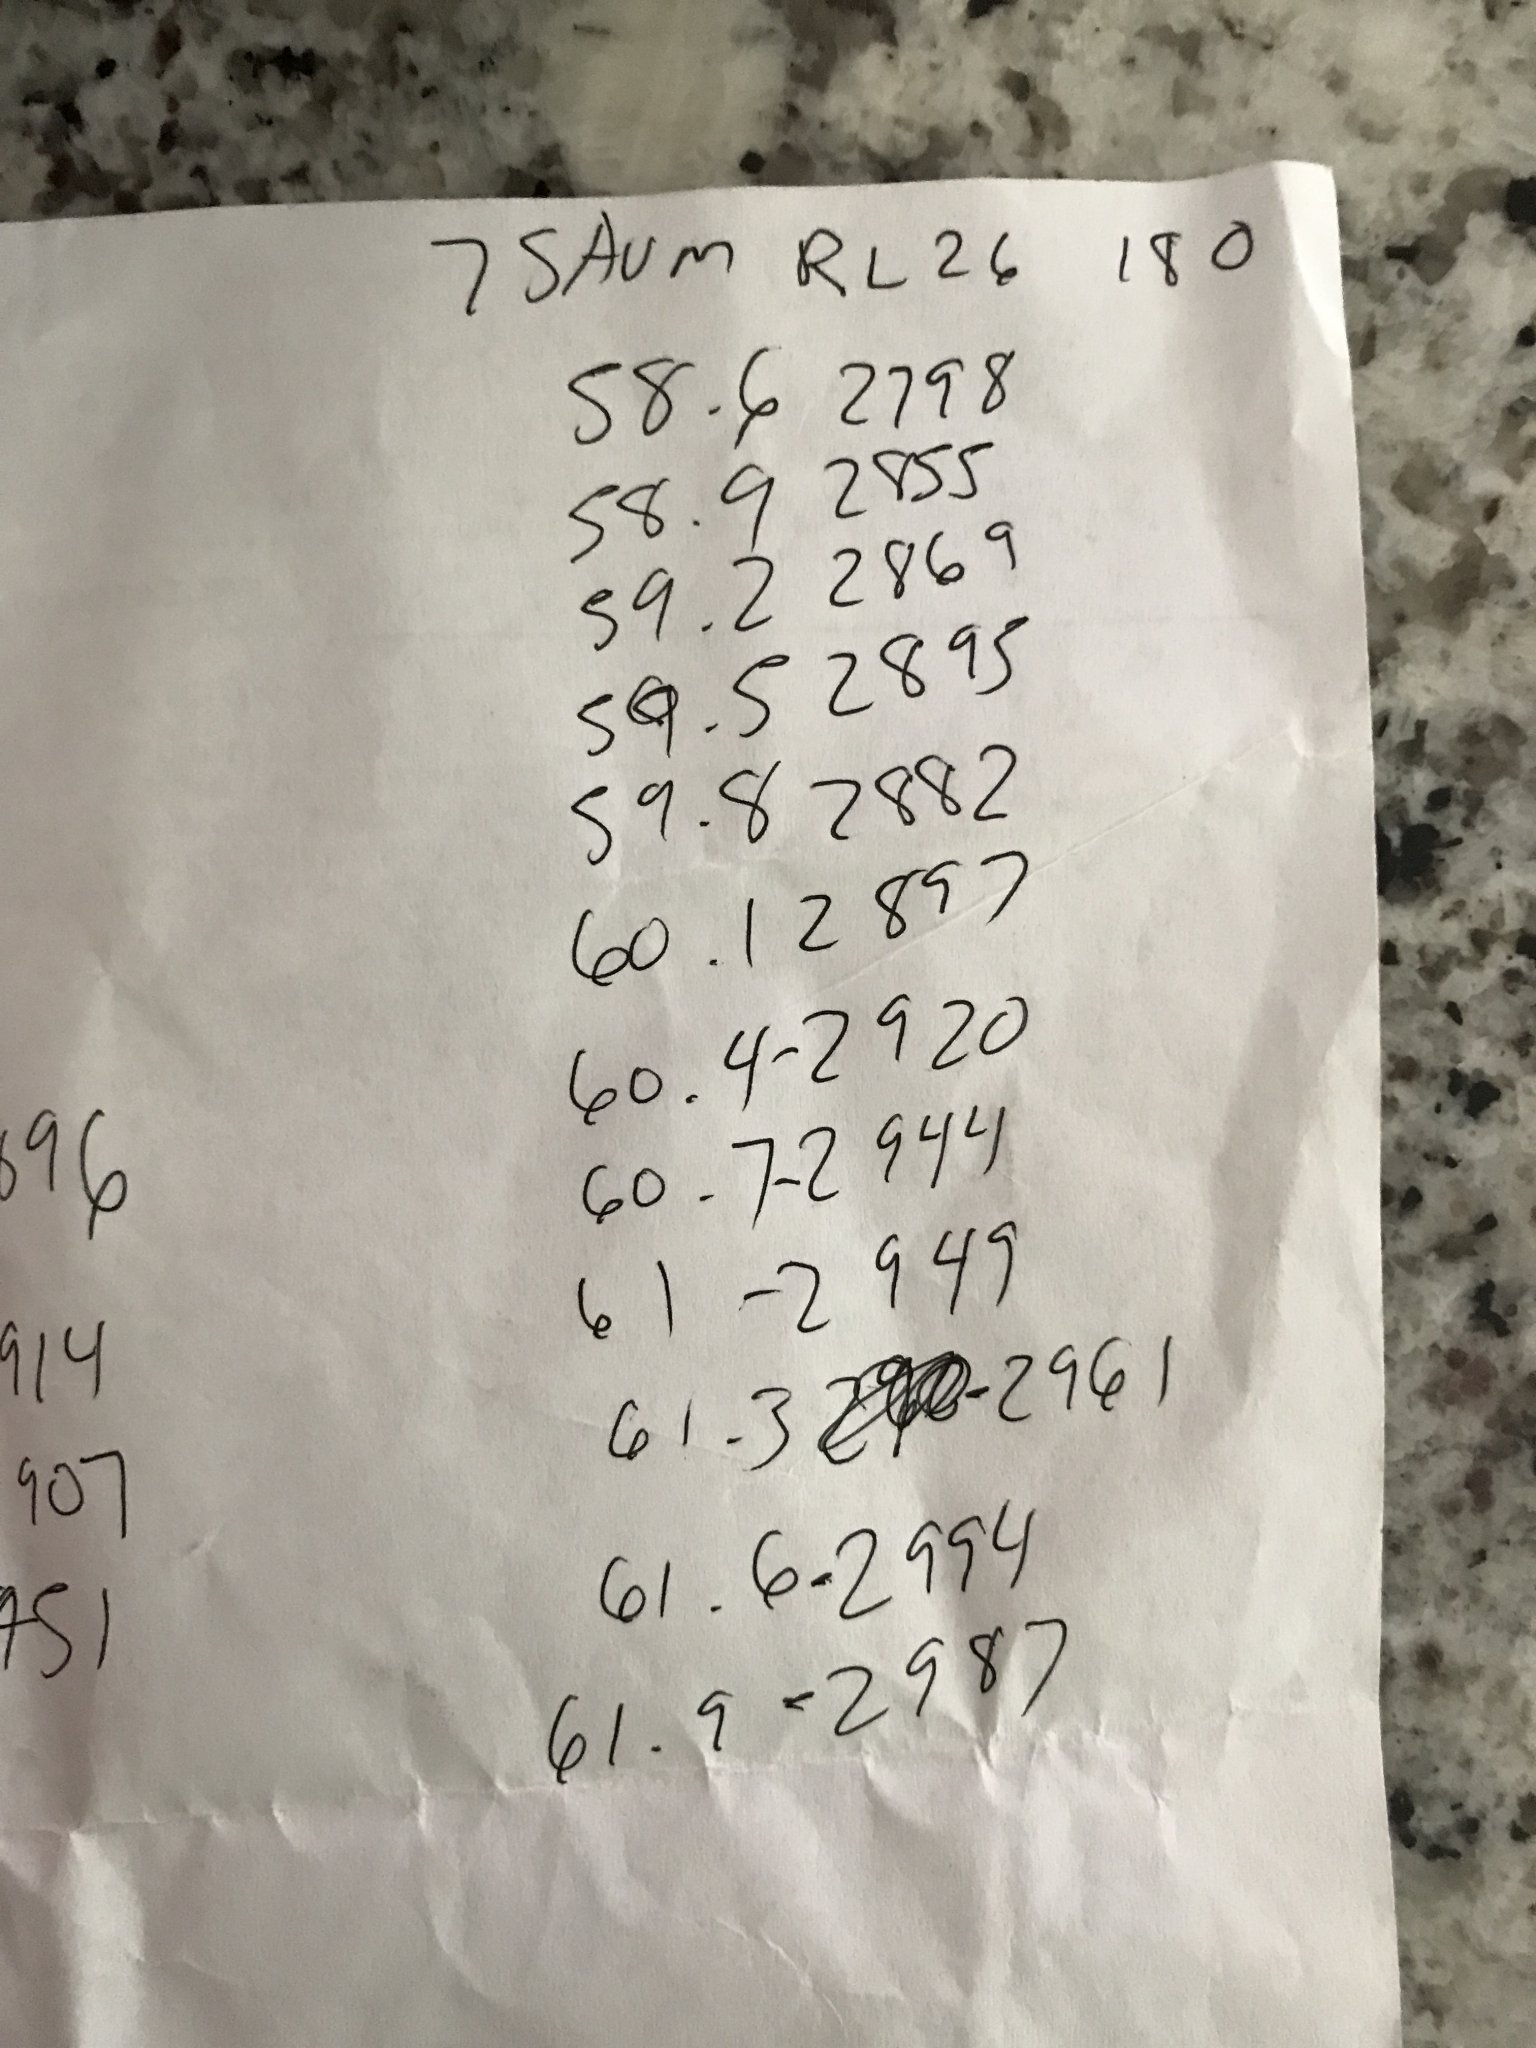 7 SAUM RL26 180
58.6 2798
58.9 2855
59.2 2869
59.5 2895
59.8 2882
60.1 2897
60.4-2920
60.7-2944
61 -2949
61.3 -2961
61.6-2994
61.9 -2987
896
914
907
951